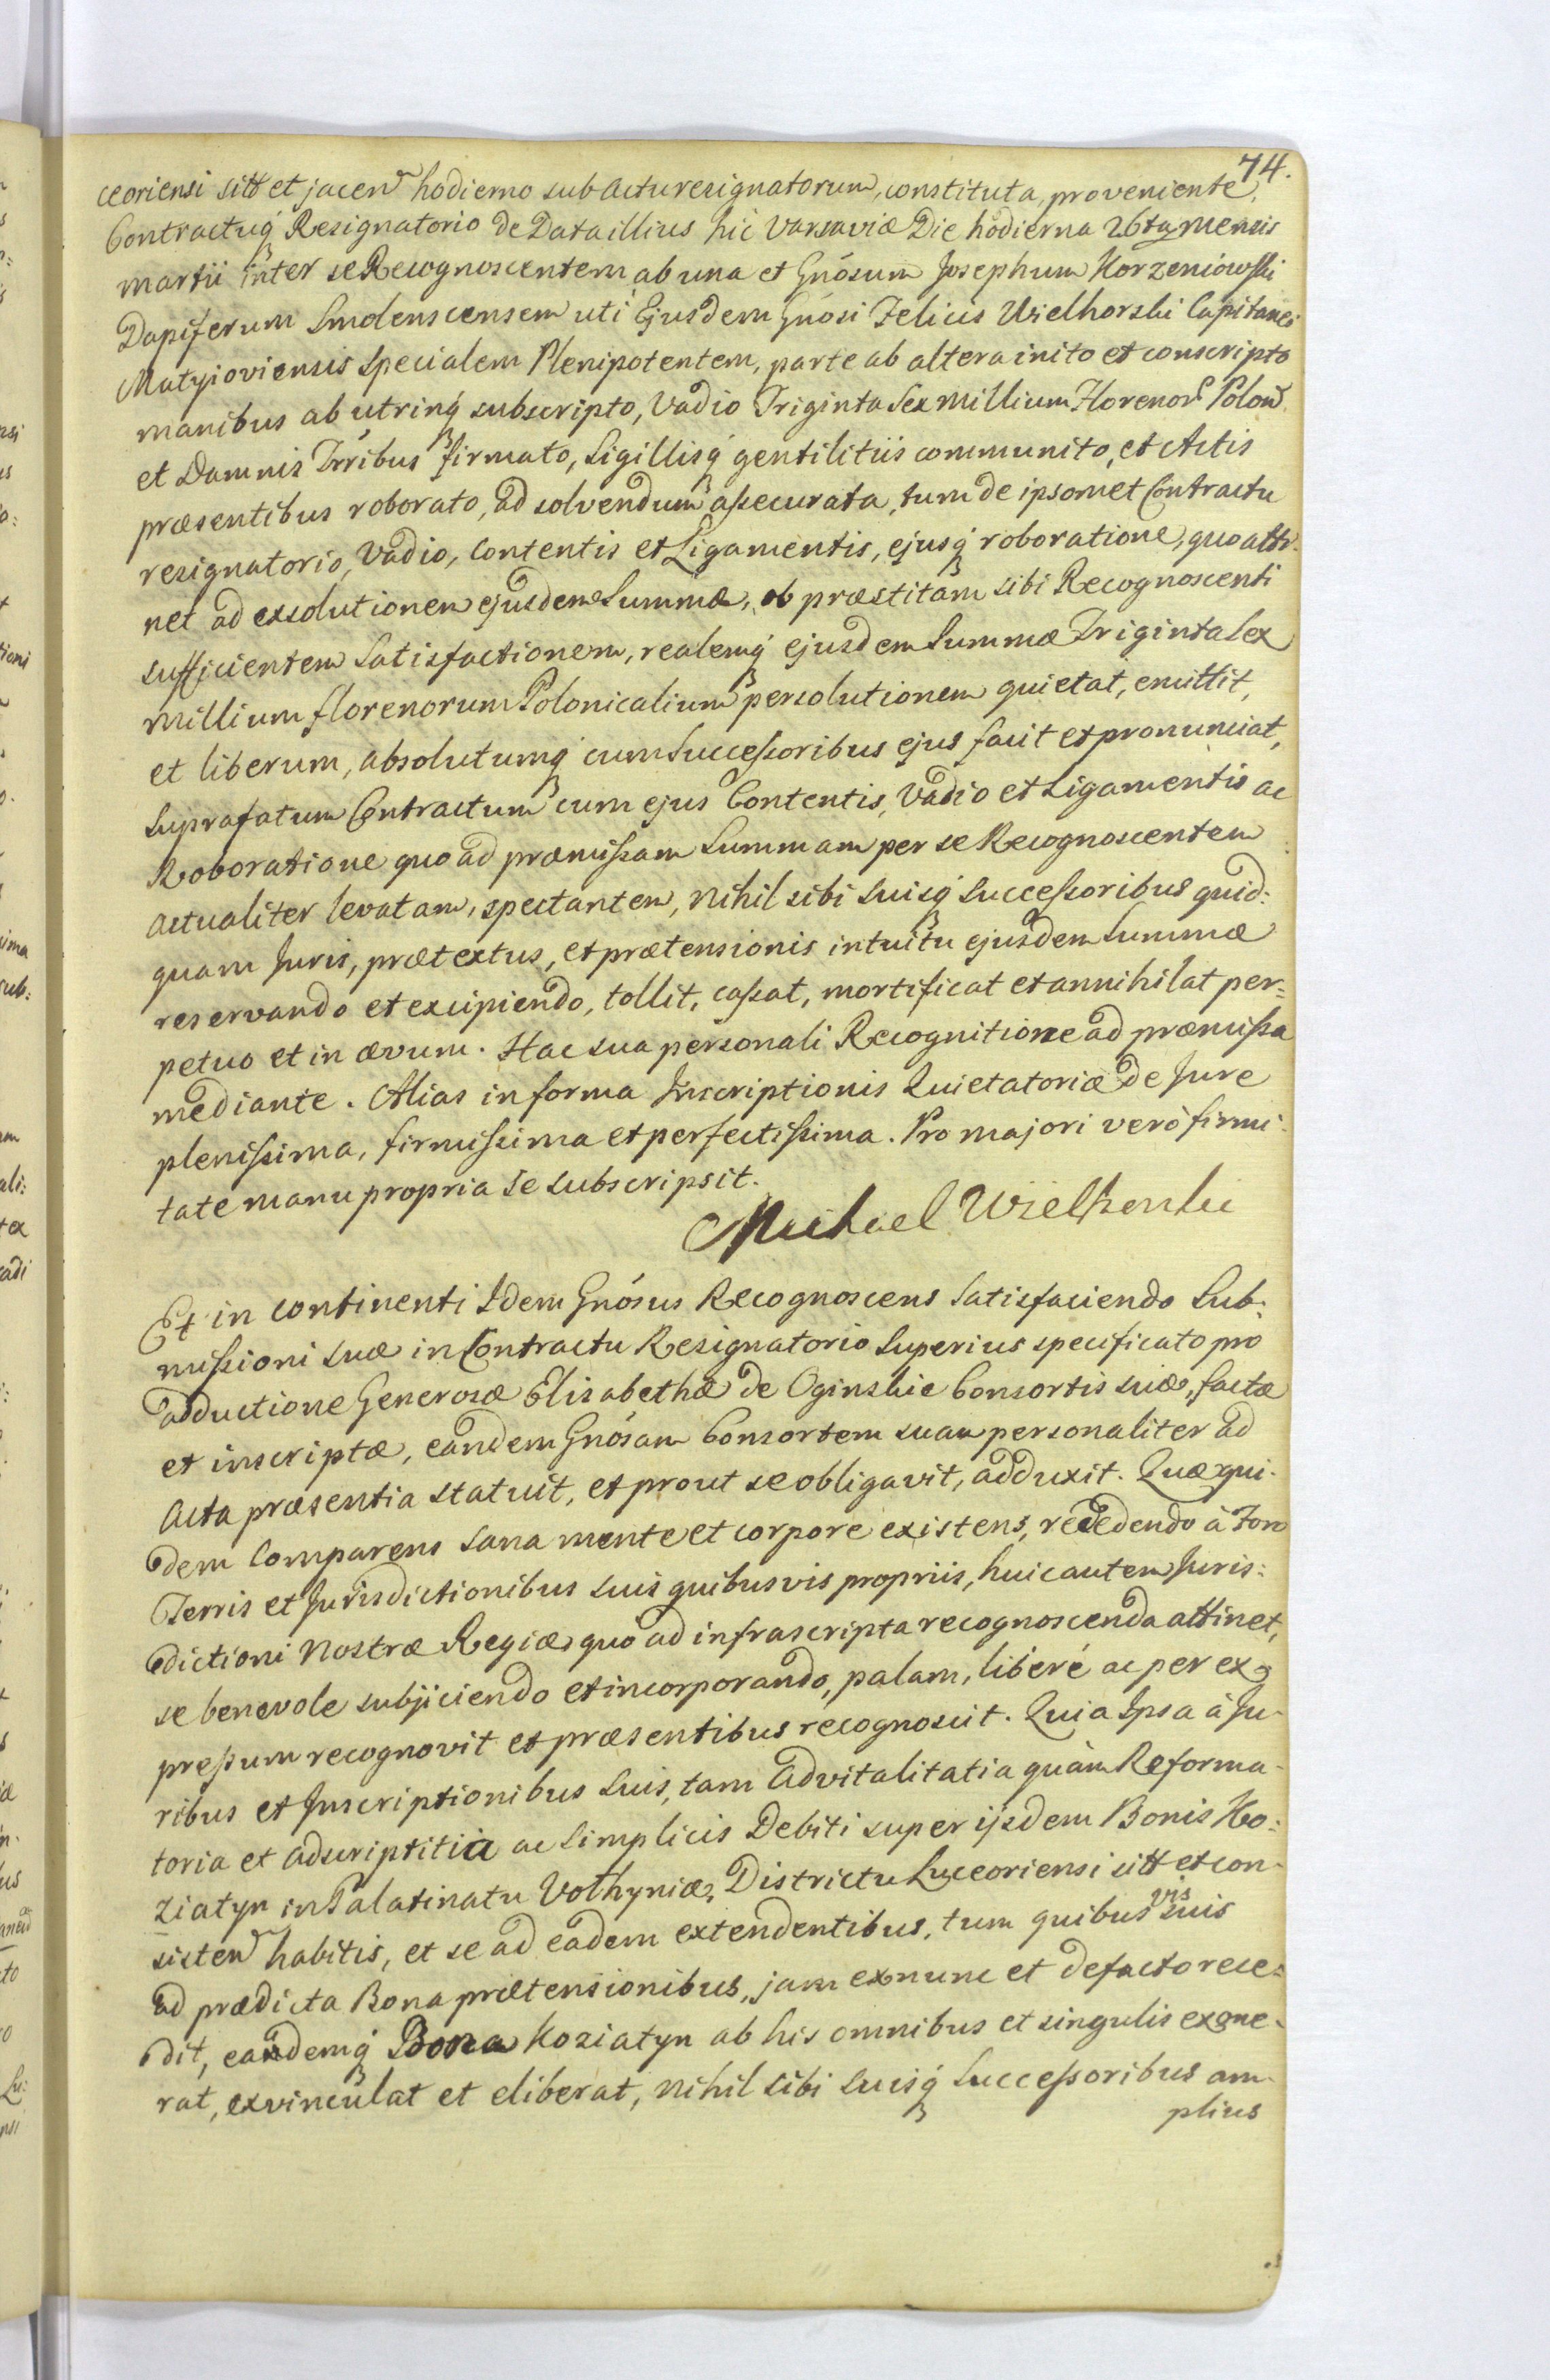 74.
ceoriensi sitt et jacen hodierno sub actu resignatorum, constituta, proveniente,
Contractuq́ Resignatorio de Data illius hic Varsaviæ Die hodierna 26ta mensis
martii inter se Recognoscentem ab una et Gnósum Josephum Korzeniowski
Dapiferum Smolenscensem uti Ejusdem Gnósi Felicis Wielhorski Capitanei
Matyioviensis Specialem Plenipotentem, parte ab altera inito et conscripto
manibus ab utrinq́ subscripto, Vadio Triginta Sex Millium Florenor Polon
et Damnis Trribus firmato, Sigillisq́ gentilitiis communito, et Actis
præsentibus roborato, ad solvendum assecurata, tum de ipsomet Contractu
resignatorio, Vadio, Contentis et Ligamentis, ejusq́ roboratione, quo atti-
net ad exsolutionem ejusdem Summæ, ob præstitam sibi Recognoscenti
sufficientem Satisfactionem, realemq́ ejusdem Summæ Triginta Sex
Millium florenorum Polonicalium persolutionem quietat, emittit,
et liberum, absolutumq́ cum Successoribus ejus facit et pronunciat,
Suprafatum Contractum cum ejus Contentis, Vadio et Ligamentis ac
Roboratione quo ad præmissam Summam per se Recognoscentem
actualiter levatam, spectantem, nihil sibi Suisq́ Successoribus quid:
quam Juris, prætextus, et prætensionis intuitu ejusdem Summæ
reservando et excipiendo, tollit, cassat, mortificat et annihilat per=
petuo et in ævum. Hac sua personali Recognitione ad præmissa
mediante. Alias in forma Inscriptionis Quietatoriæ de Jure
plenissima, firmissima et perfectissima. Pro majori verò firmi-
tate manu propria se subscripsit.
Michael Wielhorski
Et in continenti Idem Gnósus Recognoscens Satisfaciendo Sub-
missioni suæ in Contractu Resignatorio Superius specificato pro
adductione Generosæ Elisabethæ de Oginskie Consortis suæ, factæ
et inscriptæ, eandem Gnósam Consortem suam personaliter ad
Acta præsentia statuit, et prout se obligavit, adduxit. Quæ qui-
dem Comparens sana mente et corpore existens, recedendo à Foro
Terris et Jurisdictionibus suis quibusvis propriis, huic autem Juris:
dictioni Nostræ Regiæ, quo ad infrascripta recognoscenda attinet,
se benevole subjiciendo et incorporando, palam, liberé ac per ex=
pressum recognovit et præsentibus recognoscit. Quia Ipsa à Ju-
ribus et Inscriptionibus suis, tam Advitalitatia quàm Reforma-
toria et adscriptitia ac Simplicis Debiti super ijsdem Bonis Ko:
ziatyn in Palatinatu Volhyniæ, Districtu Luceoriensi sitt et con-
sisten habitis, et se ad eadem extendentibus, tum quibusvis suis
ad prædicta Bona prætensionibus, jam exnunc et defacto rece=
dit, eandemq́ Bona Koziatyn ab his omnibus et singulis exone-
rat, exvinculat et eliberat, nihil sibi suisq́ Successoribus am-
plius